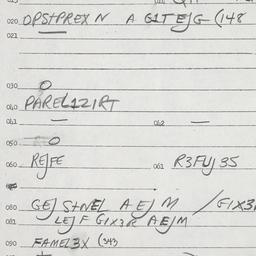 020 OPSTPREX N A G1TEJG (148
021
030
040 PAREL1Z1RT
041 062
050
060 REJFE 061 R3FUJ35
080 GEJ STNEL A EJ M / G1X3
081 LEJ F G1X3R AEJM
090 FAMEL3X (343